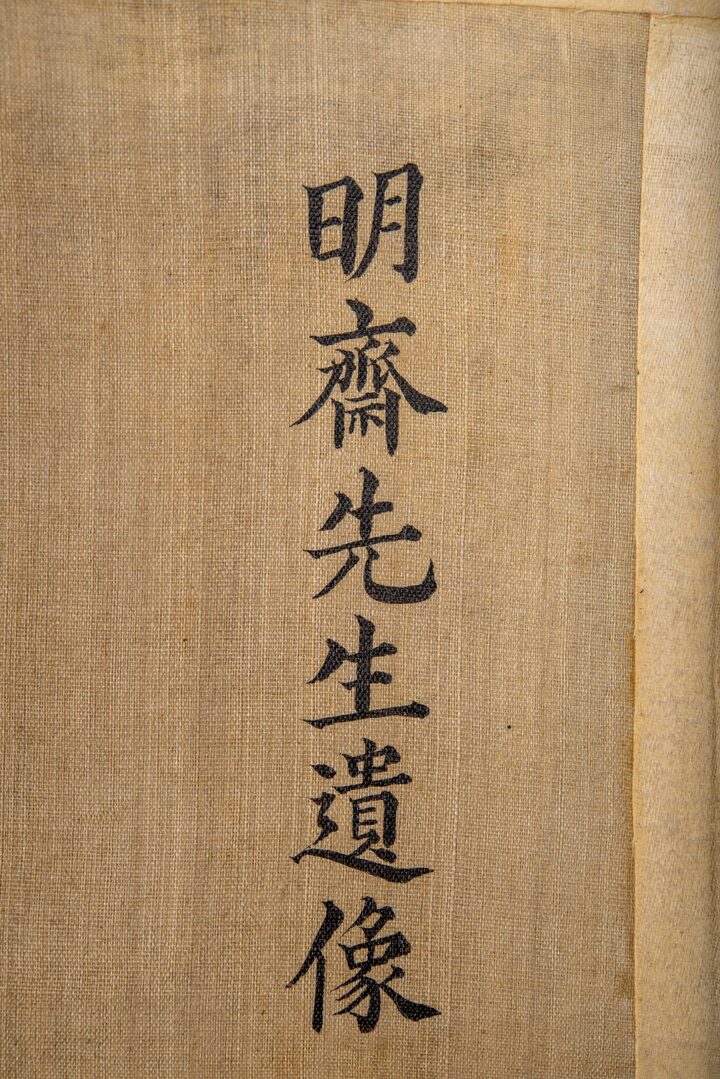 明齋先生遺像